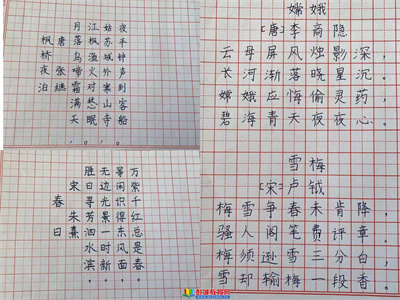 枫桥夜泊
唐 张继
月落乌啼霜满天,
江枫渔火对愁眠。
姑苏城外寒山寺,
夜半钟声到客船。
嫦娥
[唐]李商隐
云母屏风烛影深,
长河渐落晓星沉。
嫦娥应悔偷灵药,
碧海青天夜夜心。
春日
宋 朱熹
胜日寻芳泗水滨,
无边光景一时新。
等闲识得东风面,
万紫千红总是春。
雪梅
[宋]卢钺
梅雪争春未肯降,
骚人阁笔费评章。
梅须逊雪三分白,
雪却输梅一段香。